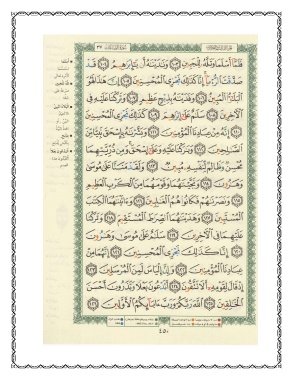 فَلَمَّآ أَسْلَمَا وَتَلَّهُۥ لِلْجَبِينِ ١٠٣ وَنَٰدَيْنَٰهُ أَن يَٰٓإِبْرَٰهِيمُ ١٠٤ قَدْ
صَدَّقْتَ ٱلرُّءْيَآ إِنَّا كَذَٰلِكَ نَجْزِى ٱلْمُحْسِنِينَ ١٠٥ إِنَّ هَٰذَا لَهُوَ
ٱلْبَلَٰٓؤُا۟ ٱلْمُبِينُ ١٠٦ وَفَدَيْنَٰهُ بِذِبْحٍ عَظِيمٍ ١٠٧ وَتَرَكْنَا عَلَيْهِ فِى
ٱلْءَاخِرِينَ ١٠٨ سَلَٰمٌ عَلَىٰٓ إِبْرَٰهِيمَ ١٠٩ كَذَٰلِكَ نَجْزِى ٱلْمُحْسِنِينَ ١١٠
إِنَّهُۥ مِنْ عِبَادِنَا ٱلْمُؤْمِنِينَ ١١١ وَبَشَّرْنَٰهُ بِإِسْحَٰقَ نَبِيًّا مِّنَ
ٱلصَّٰلِحِينَ ١١٢ وَبَٰرَكْنَا عَلَيْهِ وَعَلَىٰٓ إِسْحَٰقَ وَمِن ذُرِّيَّتِهِمَا
مُحْسِنٌ وَظَالِمٌ لِّنَفْسِهِۦ مُبِينٌ ١١٣ وَلَقَدْ مَنَنَّا عَلَىٰ مُوسَىٰ
وَهَٰرُونَ ١١٤ وَنَجَّيْنَٰهُمَا وَقَوْمَهُمَا مِنَ ٱلْكَرْبِ ٱلْعَظِيمِ
١١٥ وَنَصَرْنَٰهُمْ فَكَانُوا۟ هُمُ ٱلْغَٰلِبِينَ ١١٦ وَءَاتَيْنَٰهُمَا ٱلْكِتَٰبَ
ٱلْمُسْتَبِينَ ١١٧ وَهَدَيْنَٰهُمَا ٱلصِّرَٰطَ ٱلْمُسْتَقِيمَ ١١٨ وَتَرَكْنَا
عَلَيْهِمَا فِى ٱلْءَاخِرِينَ ١١٩ سَلَٰمٌ عَلَىٰ مُوسَىٰ وَهَٰرُونَ
١٢٠ إِنَّا كَذَٰلِكَ نَجْزِى ٱلْمُحْسِنِينَ ١٢١ إِنَّهُمَا مِنْ
عِبَادِنَا ٱلْمُؤْمِنِينَ ١٢٢ وَإِنَّ إِلْيَاسَ لَمِنَ ٱلْمُرْسَلِينَ ١٢٣
إِذْ قَالَ لِقَوْمِهِۦٓ أَلَا تَتَّقُونَ ١٢٤ أَتَدْعُونَ بَعْلًا وَتَذَرُونَ أَحْسَنَ
ٱلْخَٰلِقِينَ ١٢٥ ٱللَّهَ رَبَّكُمْ وَرَبَّ ءَابَآئِكُمُ ٱلْأَوَّلِينَ ١٢٦
٤٥٠